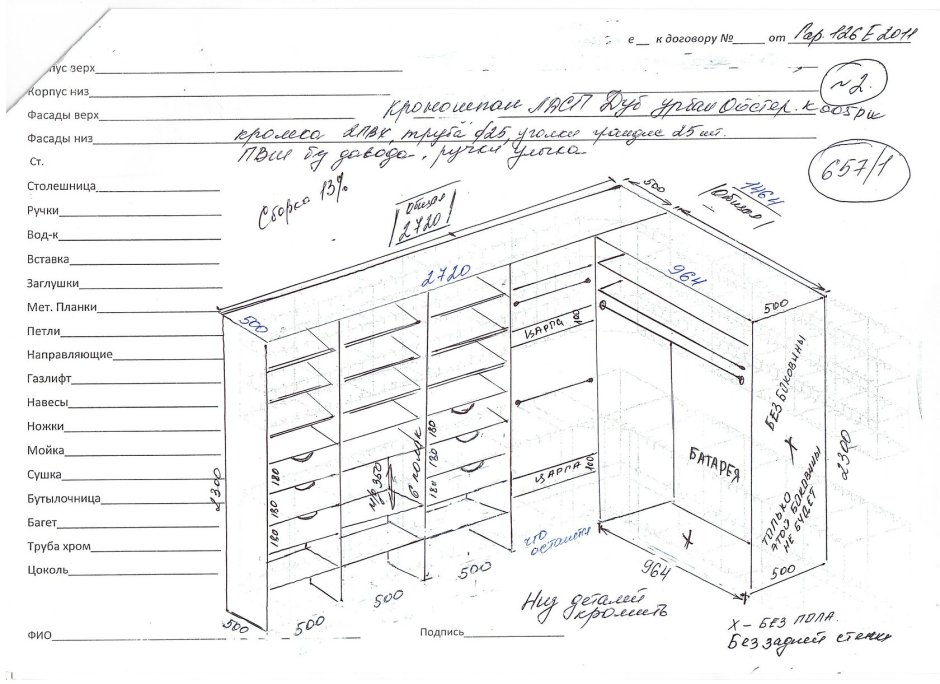 е__ к договору №_____ от Гар. 126 Е 2011
пус верх
№2.
Корпус низ
Фасады верх кроношпан ЛДСП Дуб Урбан Ойстер. К005рш
Фасады низ кромка 2ПВХ, труба ф25, уголки 25 шт.
Ст. ПВш без довода, ручки улыбка
657/1
Столешница
Сборка 13%
Ручки
Вод-к
Вставка
Заглушки
Мет. Планки
Петли
Направляющие
Газлифт
Навесы
Ножки
Мойка
Сушка
Бутылочница
Багет
Труба хром
Цоколь
общая
2720
500
1464
общая
2720
964
500
500
ЦАРГА 100
БЕЗ БОКОВИНЫ
180
180
180
180
180
180
м/у 360
6 полок
ЦАРГА 100
БАТАРЕЯ
Х
2300
2300
ТОЛЬКО
ЭТОЙ БОКОВИНЫ
НЕ БУДЕТ
что
останется
Х
964
500
500
500
500
500
Низ деталей
кромить
Х – БЕЗ ПОЛА.
Без задней стенки
ФИО
Подпись